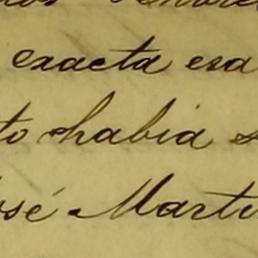 exacta esa
to habia s
José Marti